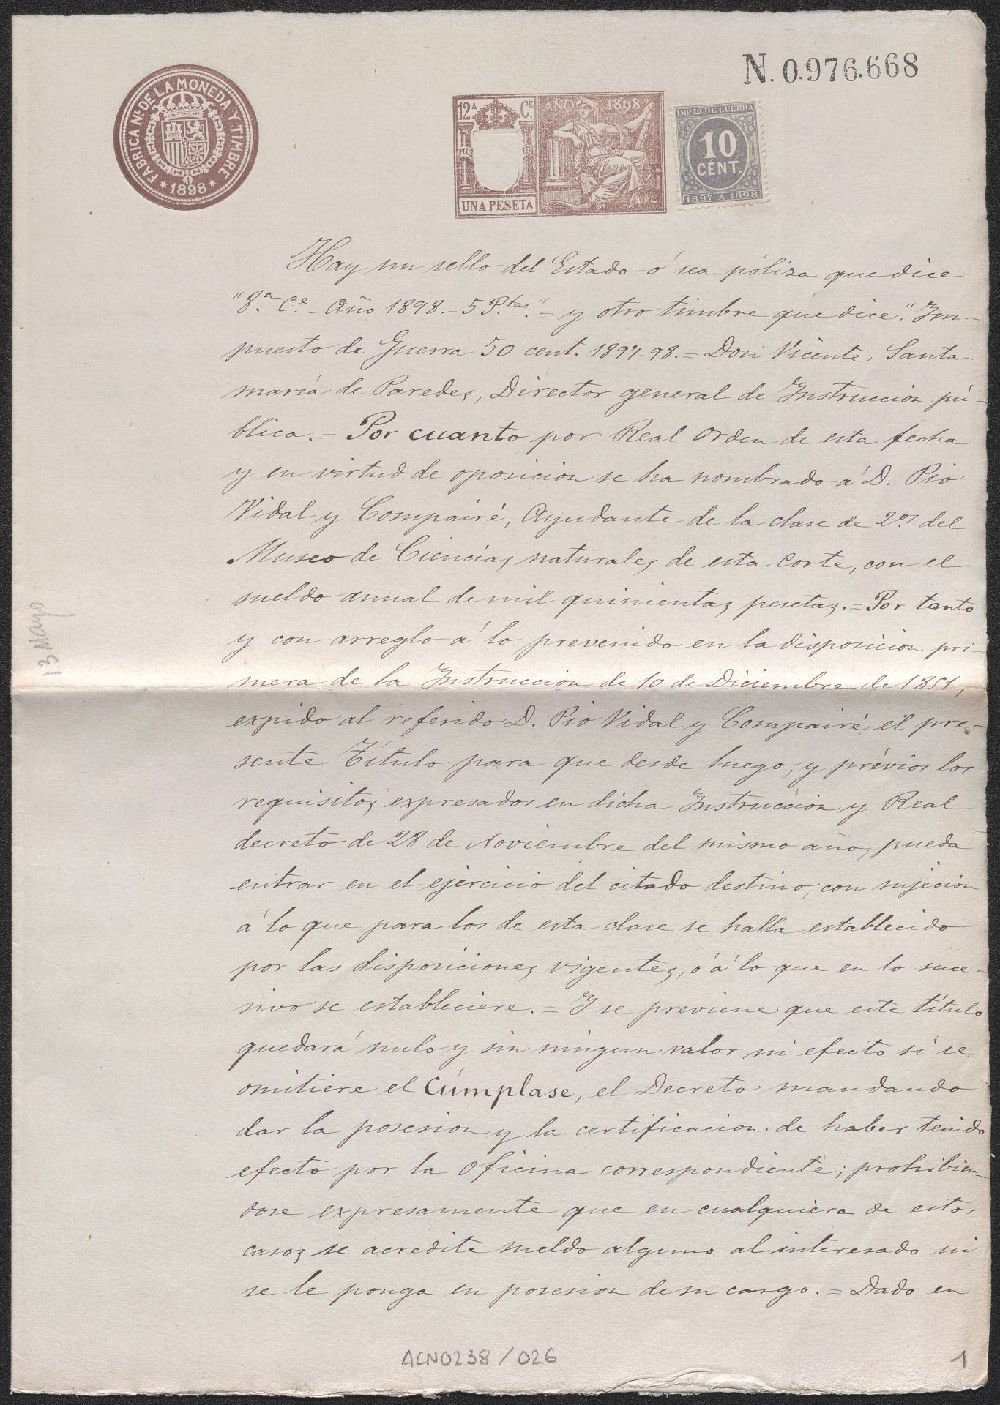 N. 0.976.668
FABRICA NL. DE LA MONEDA Y TIMBRE
* 1898 *
12ª CE
AÑO 1898
UNA PESETA
IMPTO DE GUERRA
10
CENT.
1897 A 1898
Hay un sello del Estado ó sea póliza que dice
"8.ª C.e - Año 1898. - 5 Ptas." - y otro timbre que dice: "Im-
puesto de Guerra 50 cent. 1897 98. = Don Vicente, Santa-
maría de Paredes, Director general de Instruccion pú-
blica. - Por cuanto por Real orden de esta fecha
y en virtud de oposicion se ha nombrado á D. Pio
Vidal y Compairé, Ayudante de la clase de 2os del
Museo de Ciencias naturales de esta Corte, con el
sueldo anual de mil quinientas pesetas. = Por tanto
y con arreglo á lo prevenido en la disposicion pri-
mera de la Instruccion de 10 de Diciembre de 1851,
expido al referido D. Pio Vidal y Compairé, el pre-
sente Título para que desde luego, y prévios los
requisitos expresados en dicha Instrucción y Real
decreto de 28 de Noviembre del mismo año, pueda
entrar en el ejercicio del citado destino, con sujecion
á lo que para los de esta clase se halla establecido
por las disposiciones vigentes, ó á lo que en lo suce-
sivo se estableciere. = Y se previene que este título
quedará nulo y sin ningun valor ni efecto si se
omitiere el Cúmplase, el Decreto mandando
dar la posesion y la certificacion de haber tenido
efecto por la Oficina correspondiente; prohibien-
dose expresamente que en cualquiera de estos
casos se acredite sueldo alguno al interesado ni
se le ponga en posesion de su cargo. = Dado en
13 Mayo
ACN0238 / 026
1